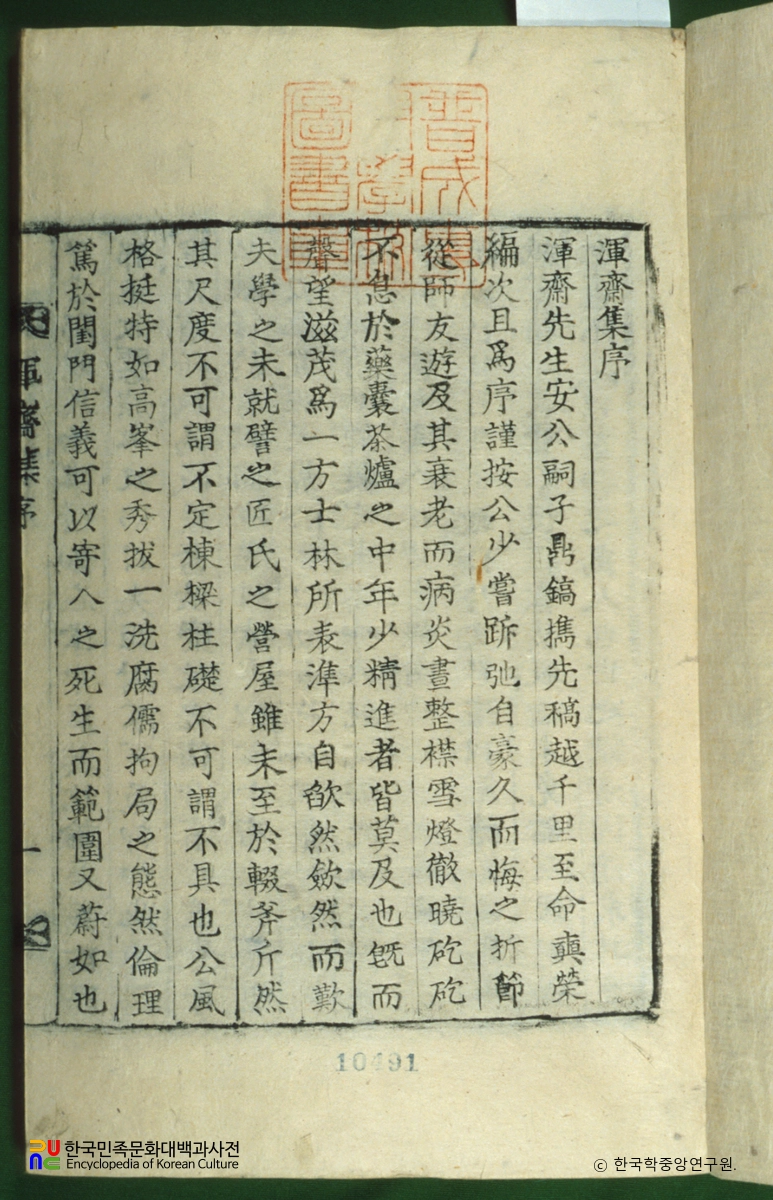 普成專
門學校
圖書章
渾齋集序
渾齋先生安公嗣子鼎鎬攜先稿越千里至命奭榮
編次且爲序謹按公少嘗跅弛自豪久而悔之折節
從師友遊及其衰老而病炎晝整襟雪燈徹曉矻矻
不怠於藥囊茶爐之中年少精進者皆莫及也旣而
聲望滋茂爲一方士林所表準方自欿然歛然而歎
夫學之未就譬之匠氏之營屋雖未至於輟斧斤然
其尺度不可謂不定棟樑柱礎不可謂不具也公風
格挺特如高峯之秀拔一洗腐儒拘局之態然倫理
篤於閨門信義可以寄人之死生而範圍又蔚如也
渾齋集序
一
10491
한국민족문화대백과사전
Encyclopedia of Korean Culture
© 한국학중앙연구원.